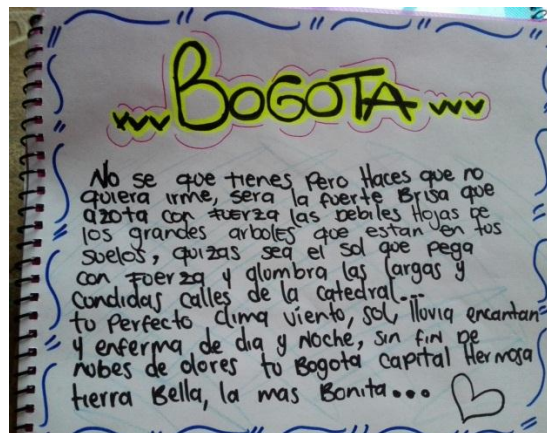 BOGOTA
No se que tienes Pero Haces que no
quiera irme, sera la fuerte Brisa que
azota con fuerza las Debiles Hojas De
los grandes arboles que estan en tus
suelos, quizas sea el sol que pega
con Fuerza y alumbra las largas y
Condidas calles de la catedral...
tu Perfecto clima viento, sol, lluvia encantan
y enferma de dia y Noche, sin fin De
nubes de olores tu Bogota capital Hermosa
tierra Bella, la mas Bonita...